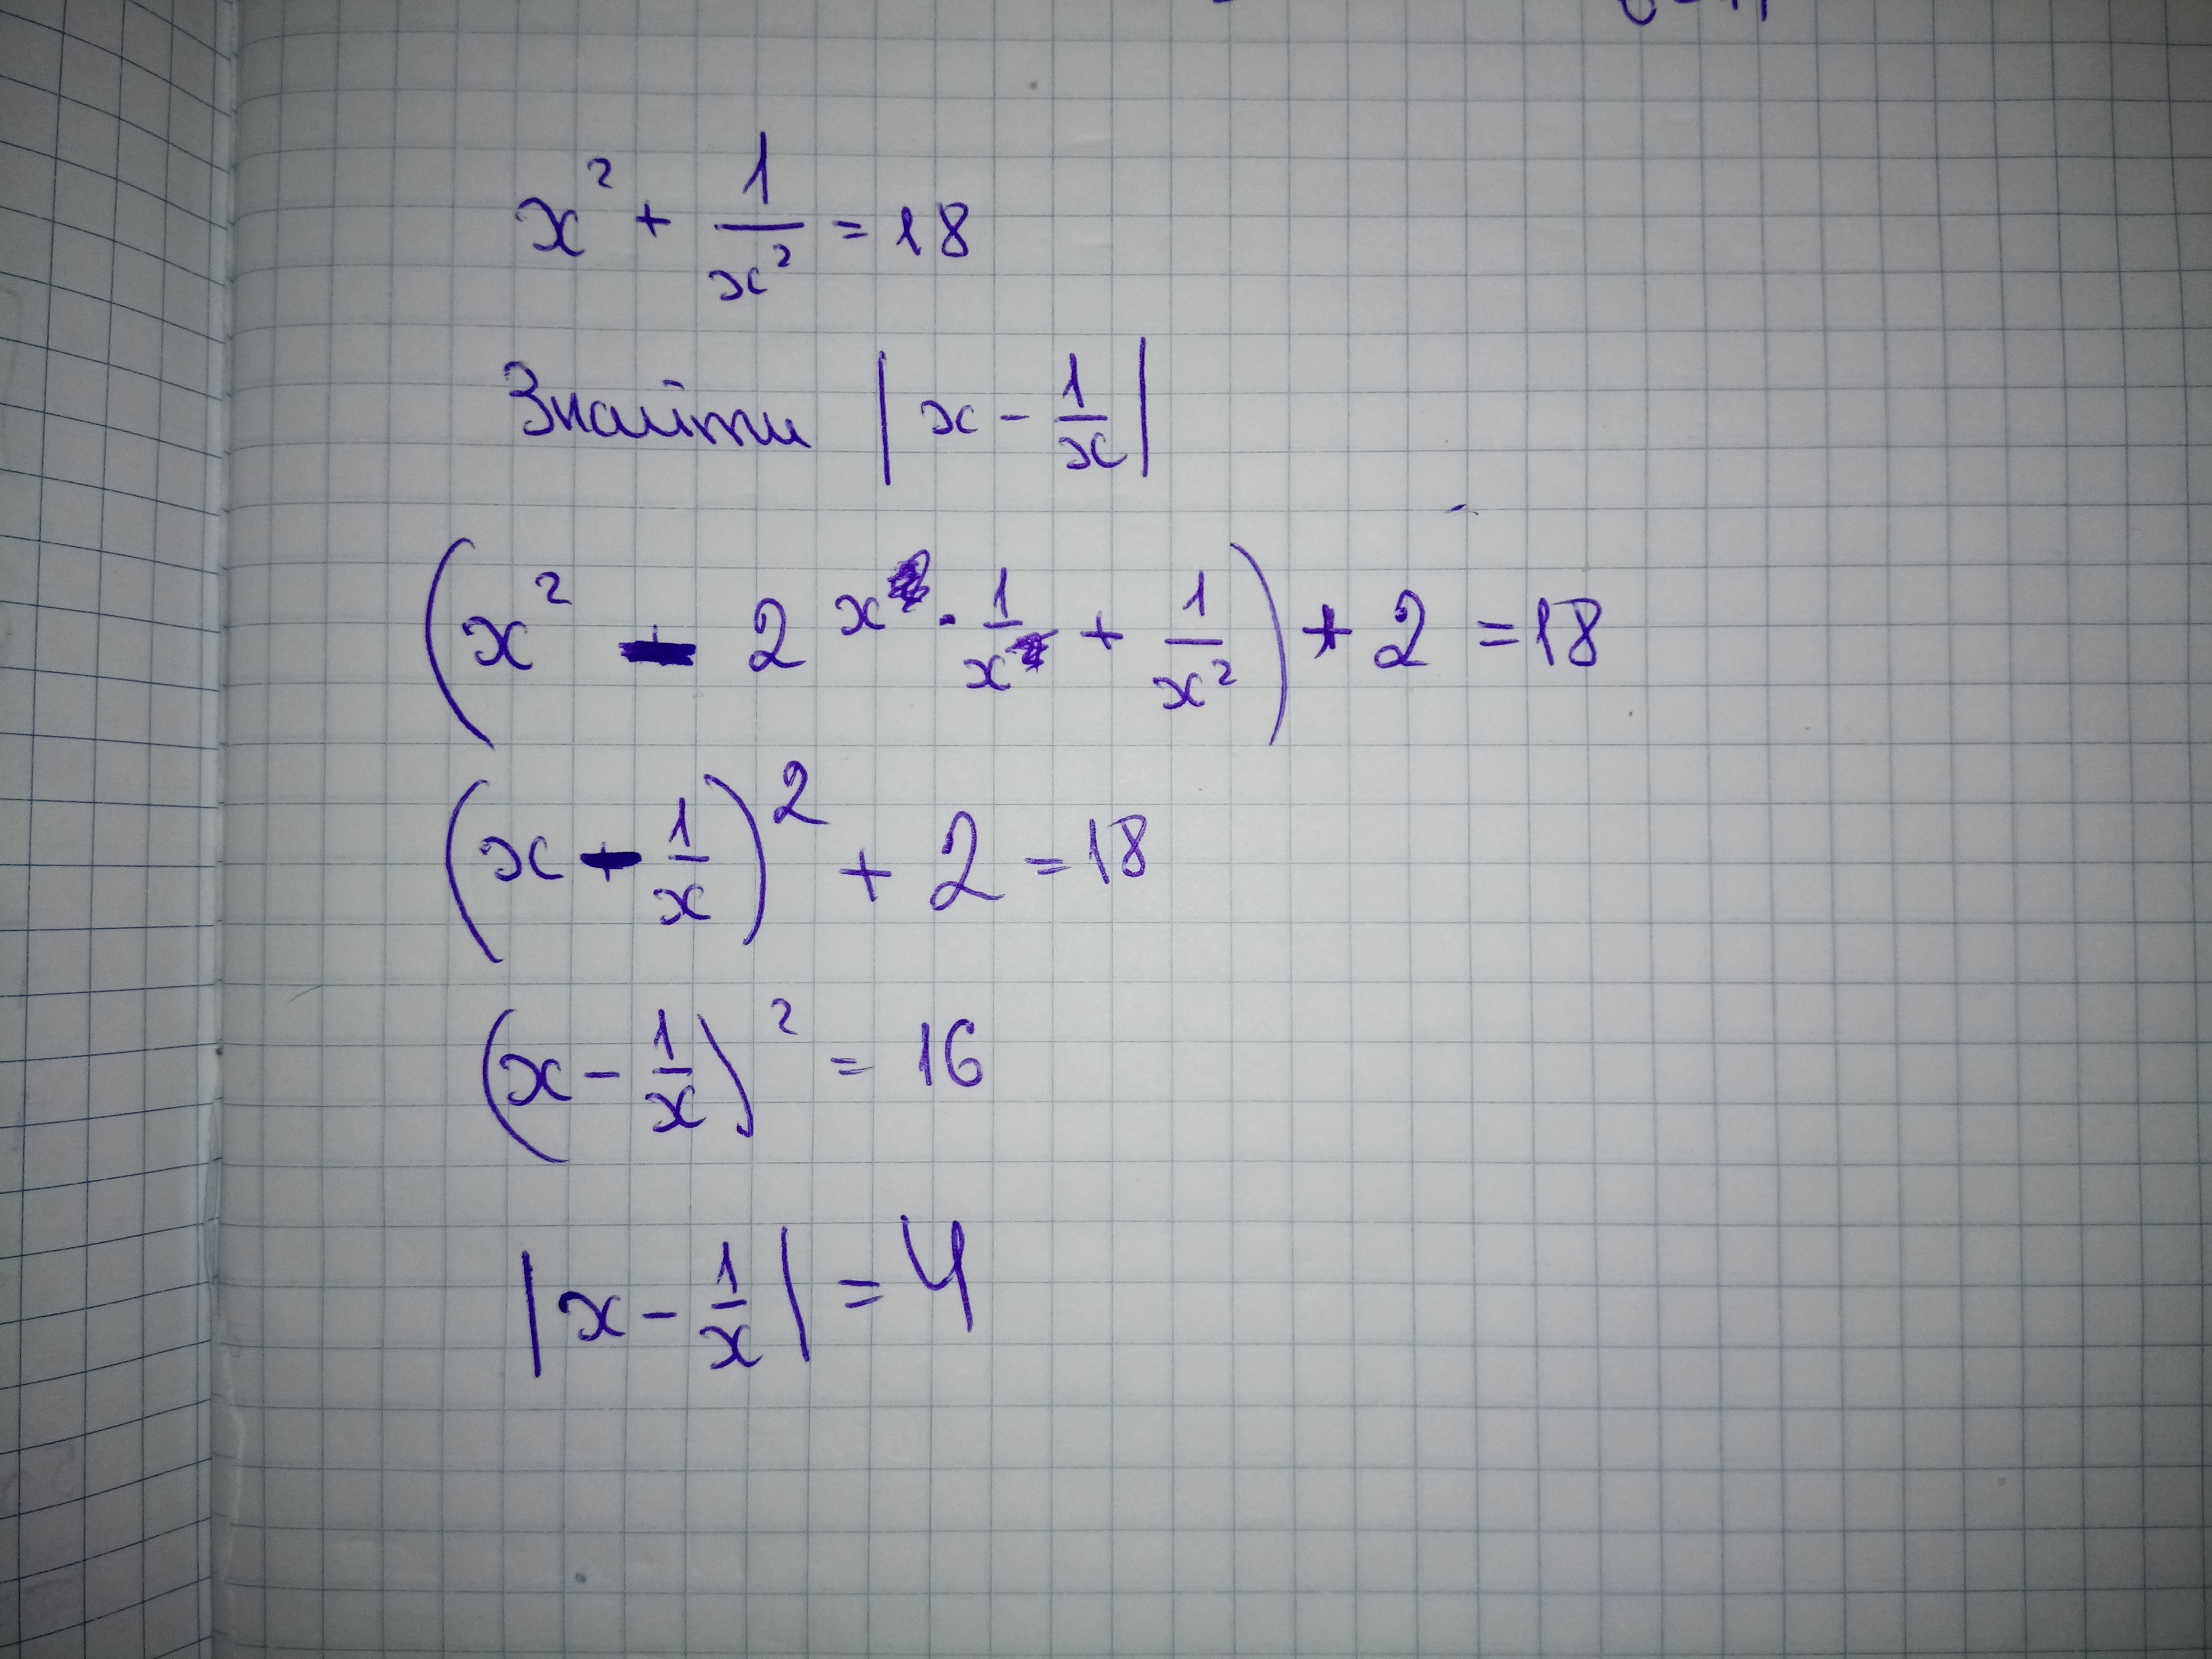 x² + 1/x² = 18
Знайти |x - 1/x|
(x² - 2 x · 1/x + 1/x²) + 2 = 18
(x - 1/x)² + 2 = 18
(x - 1/x)² = 16
|x - 1/x| = 4